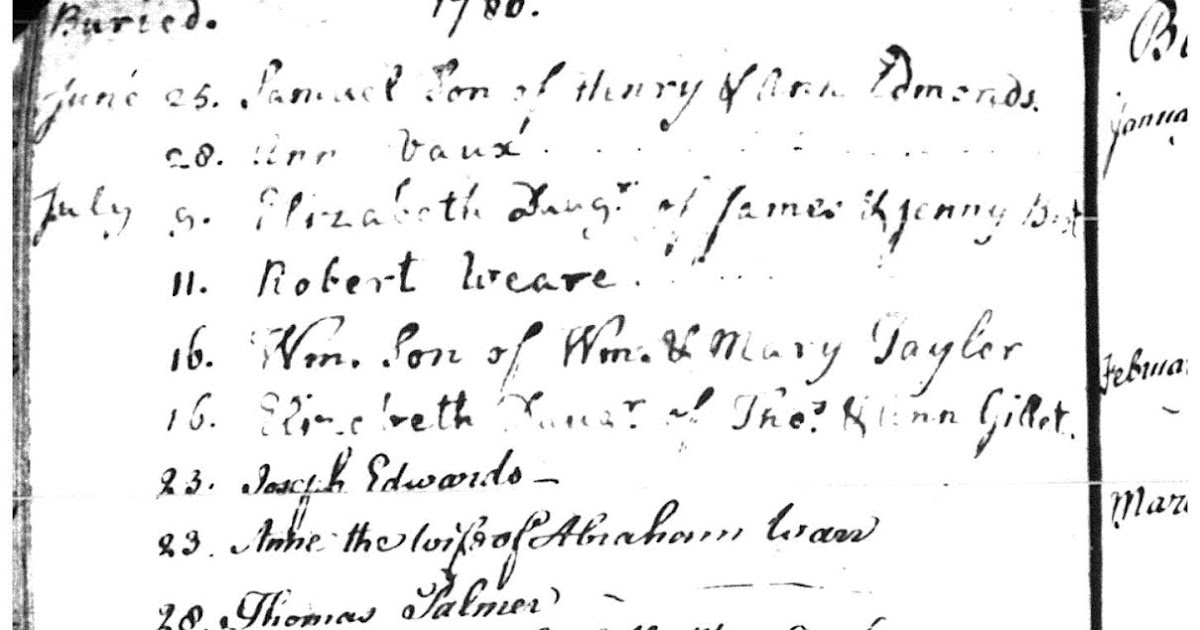 Buried. 1786.
June 25. Samuel Son of Henry & Ann Edmonds.
28. Ann Vaux
July 9. Elizabeth Daugr. of James & Jenny
11. Robert Weare.
16. Wm. Son of Wm. & Mary Tayler
16. Elizabeth Daugr. of Thos. & Ann Gillet.
23. Joseph Edwards —
23. Anne the wife of Abraham
28. Thomas Palmer